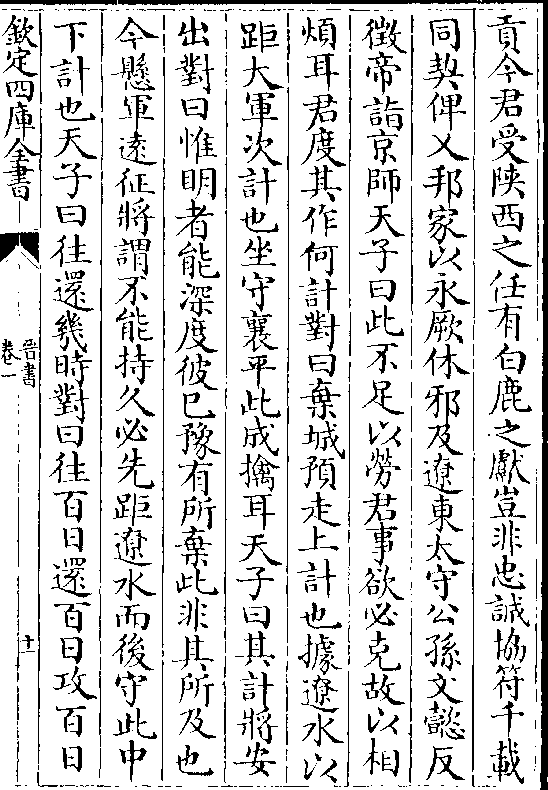 貢今君受陜西之任有白鹿之獻豈非忠誠協符千載
同契俾乂邦家以永厥休邪及遼東太守公孫文懿反
徵帝詣京師天子曰此不足以勞君事欲必克故以相
煩耳君度其作何計對曰棄城預走上計也據遼水以
距大軍次計也坐守襄平此成擒耳天子曰其計將安
出對曰惟明者能深度彼已豫有所棄此非其所及也
今懸軍遠征將謂不能持久必先距遼水而後守此中
下計也天子曰往還幾時對曰往百日還百日攻百日
欽定四庫全書
晉書
卷一
十一